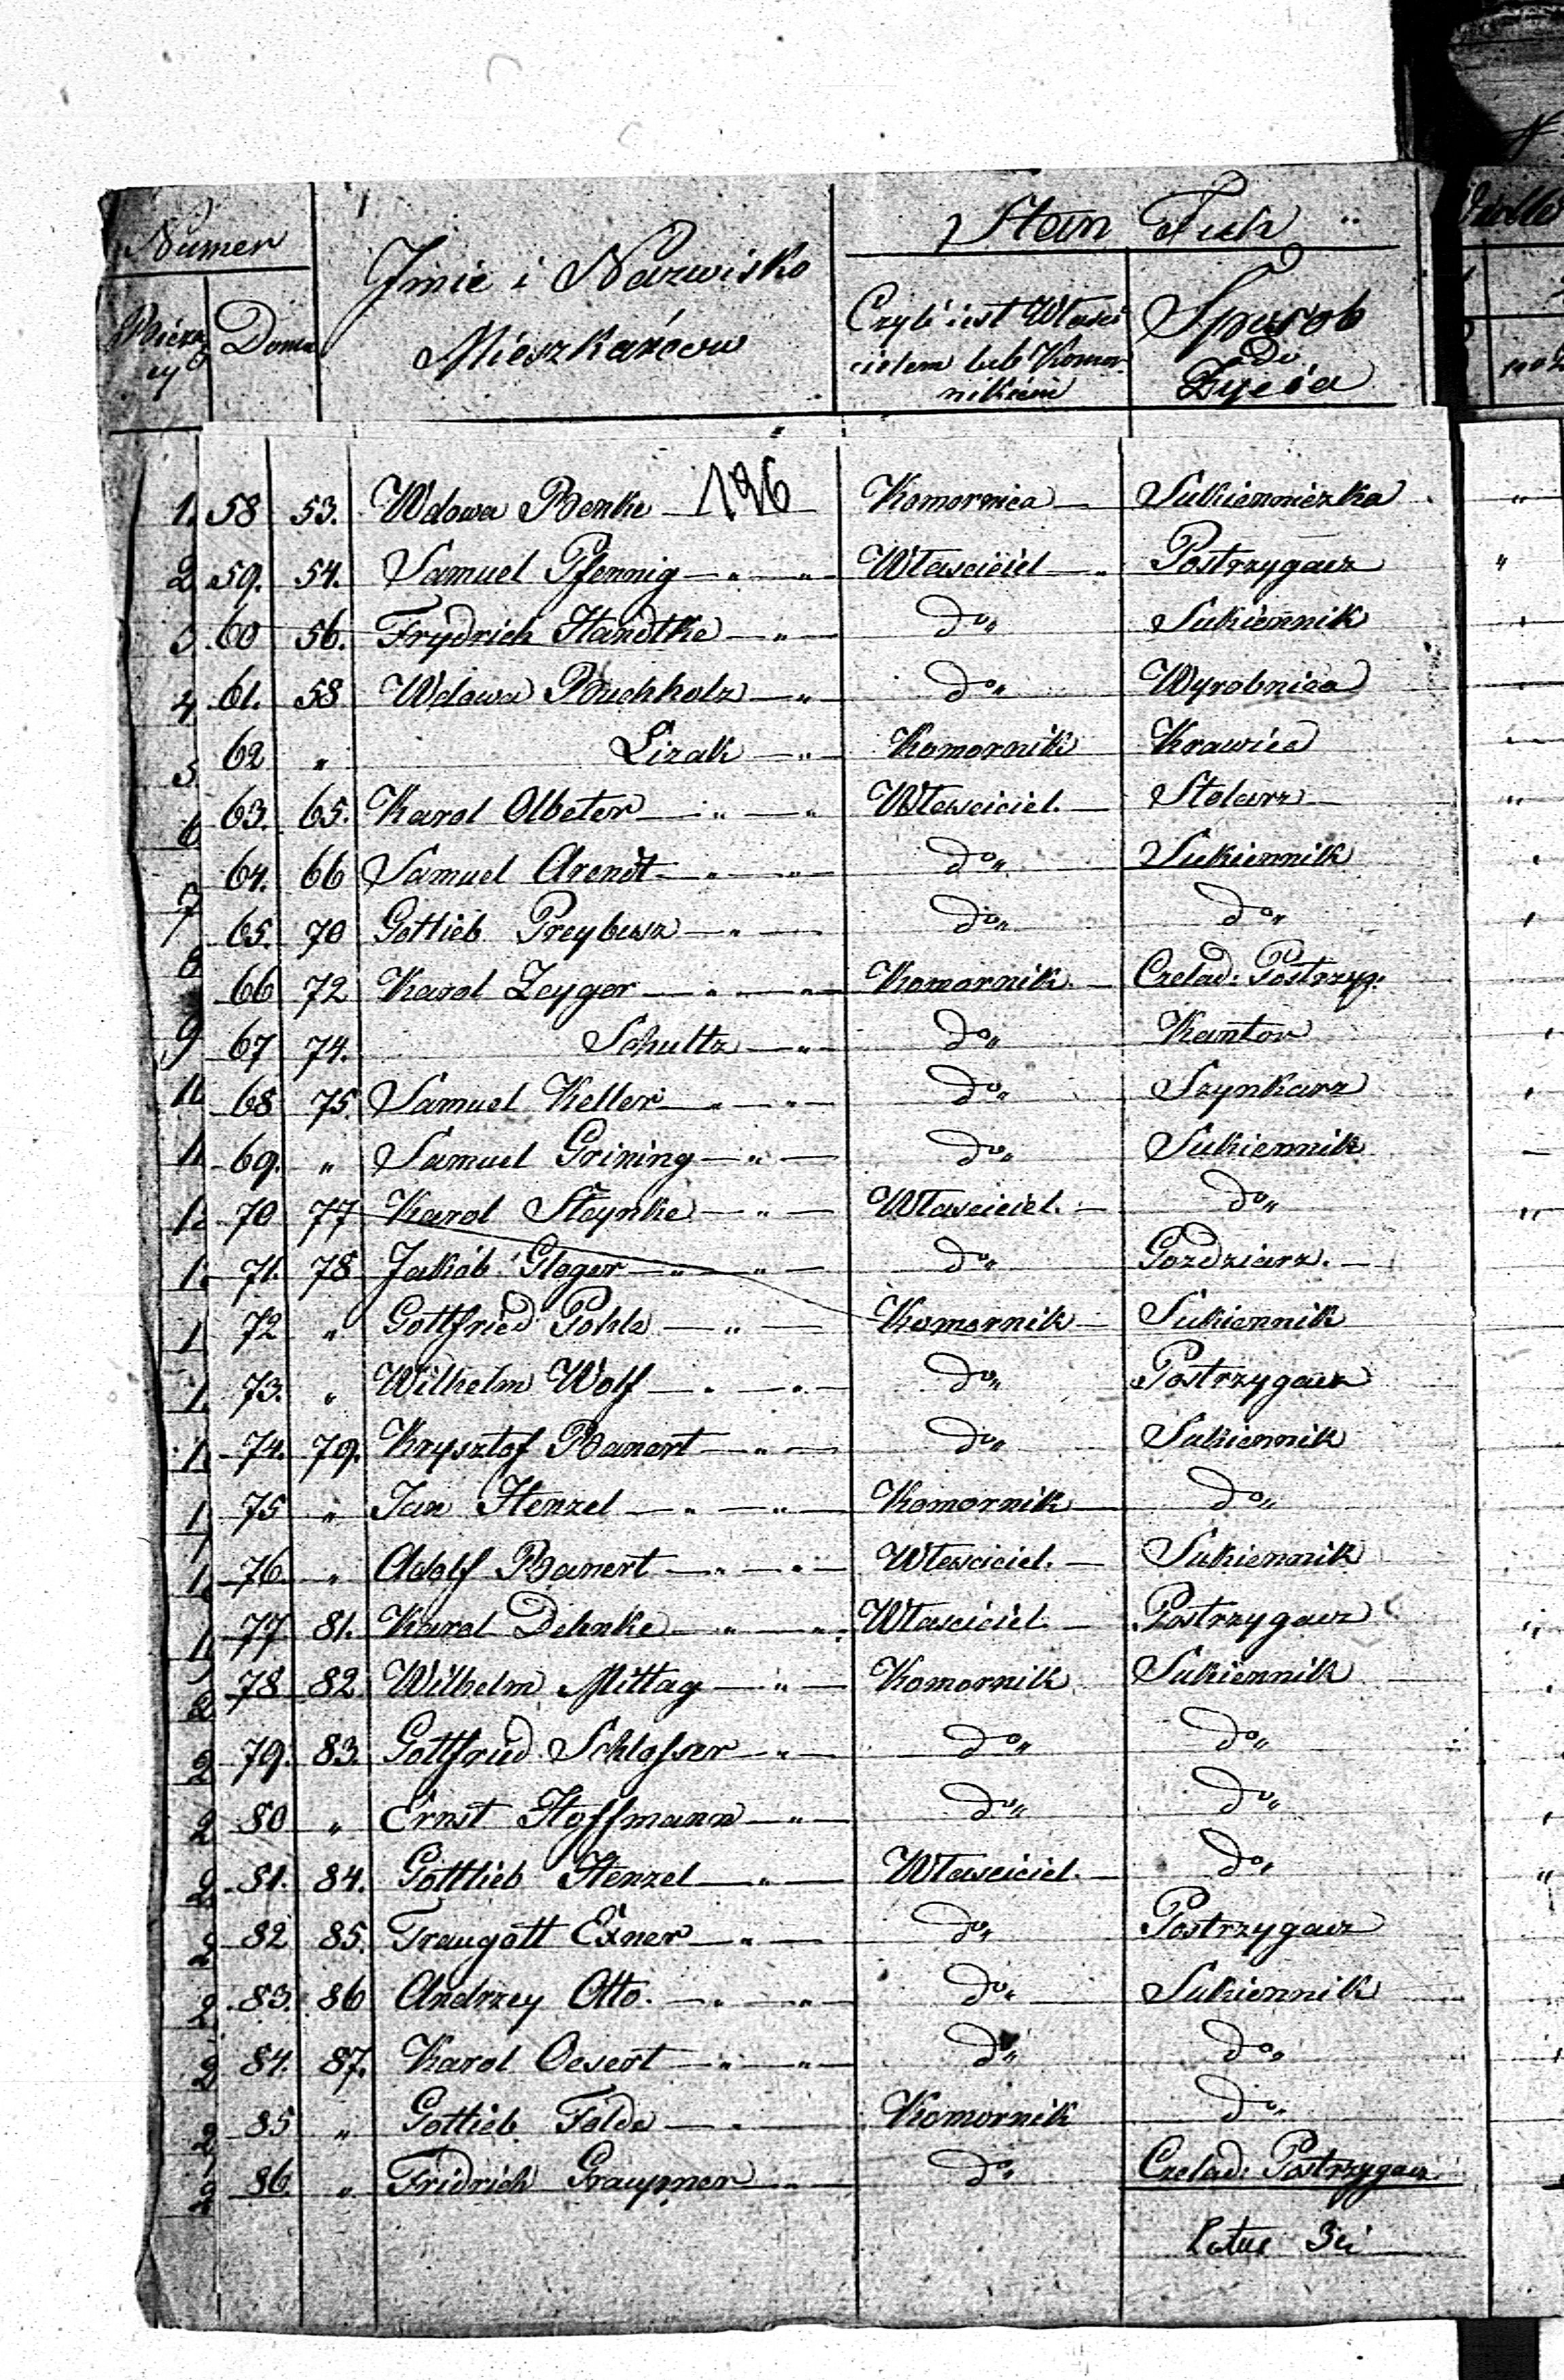 Numer
Jmie i Nazwisko
Mieszkańców
Stan Fick
Bierzący
Domu
Czyli iest Właści
cielem lub Komor
nikiem
Sposob
do
Życia
58 53. Wdowa Benke 196 Komornica Sukienniczka
59. 54. Samuel Pfennig Właściciel Postrzygacz
60 56. Frydrich Handtke do Sukiennik
61. 58 Wdowa Buchholz do Wyrobnica
62 " Lizak Komornik Krawiec
63. 65. Karol Olbeter Właściciel Stolarz
64. 66 Samuel Arendt do Sukiennik
65. 70 Gottlieb Preybisz do do
66 72 Karol Zeyger Komornik Czelad: Postrzyg:
67 74. Schultz do Kantor
68 75. Samuel Keller do Szynkarz
69. " Samuel Grining do Sukiennik
70 77 Karol Staynke Właściciel do
71. 78 Jakób Gloger do Gozdziarz.
72 " Gottfried Pohle Komornik Sukiennik
73. " Wilhelm Wolf do Postrzygacz
74. 79. Krysztof Banert do Sukiennik
75 " Jan Henzel Komornik do
76 " Adolf Banert Właściciel Sukiennik
77 81. Karol Dehnke Właściciel Postrzygacz
78 82 Wilhelm Mittag Komornik Sukiennik
79. 83. Gottfried Schlosser do do
80 " Ernst Hoffmann do do
81. 84. Gottlieb Henzel Właściciel do
82 85. Traugott Exner do Postrzygacz
83. 86 Andrzey Otto do Sukiennik
84. 87. Karol Oesert do do
85 " Gottlieb Folde Komornik do
86. " Fridrich Graupner do Czelad: Postrzygacz
Latus 3ci